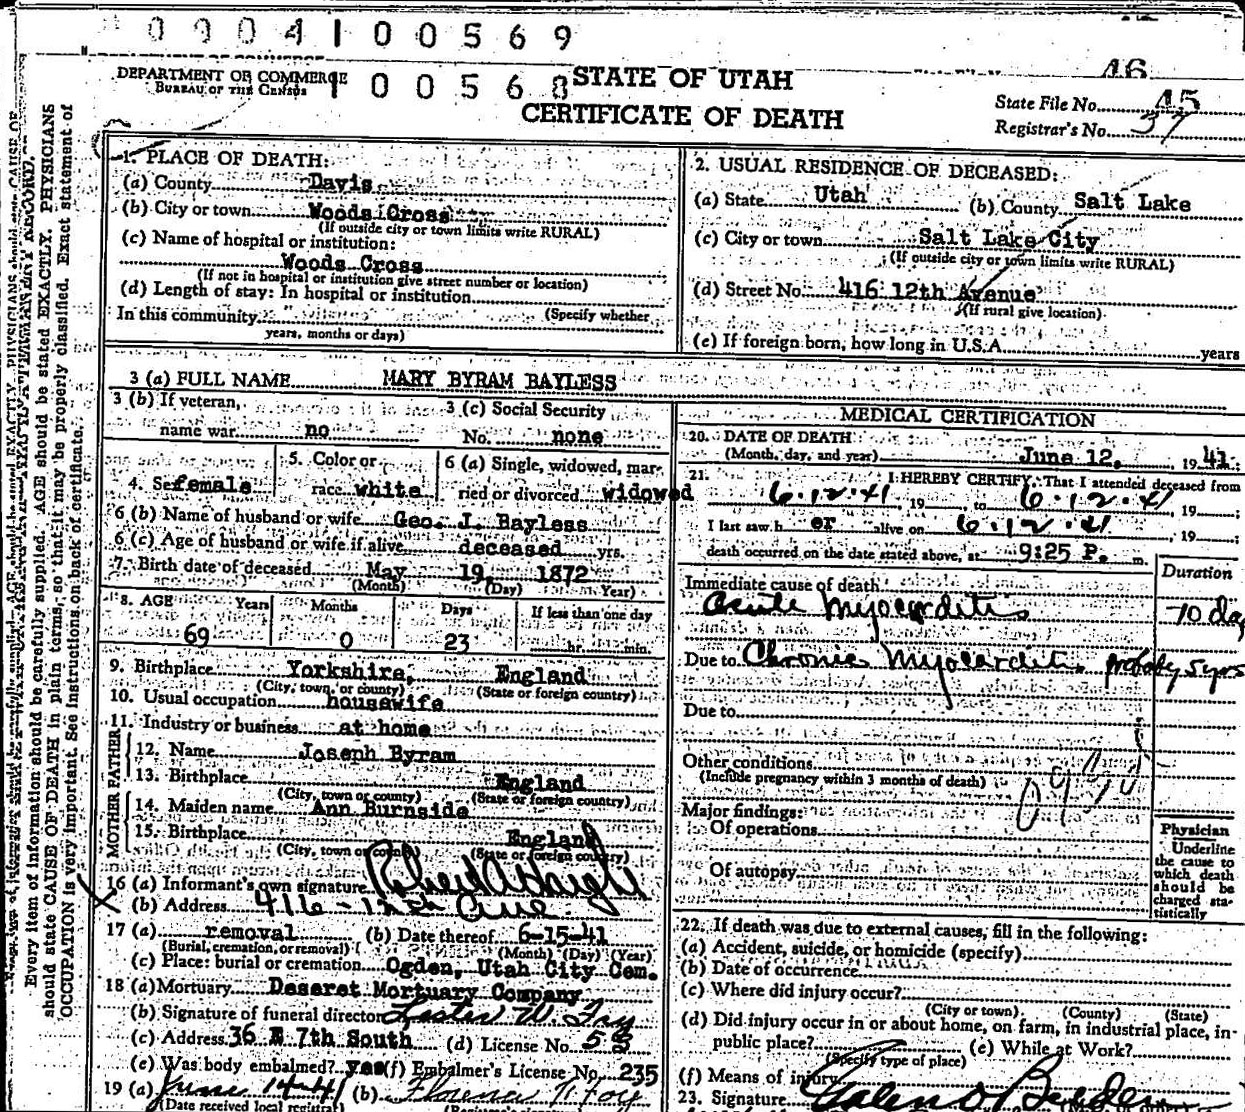 0 0 0 4 1 0 0 5 6 9
DEPARTMENT OF COMMERCE
BUREAU OF THE CENSUS
1 0 0 5 6 8
STATE OF UTAH
CERTIFICATE OF DEATH
46
State File No. 45
Registrar's No. 37
Every item of information should be carefully supplied. AGE should be stated EXACTLY. PHYSICIANS
should state CAUSE OF DEATH in plain terms, so that it may be properly classified. Exact statement of
OCCUPATION is very important. See instructions on back of certificate.
1. PLACE OF DEATH:
(a) County Davis
(b) City or town Woods Cross
(If outside city or town limits write RURAL)
(c) Name of hospital or institution:
Woods Cross
(If not in hospital or institution give street number or location)
(d) Length of stay: In hospital or institution
In this community (Specify whether
years, months or days)
2. USUAL RESIDENCE OF DECEASED:
(a) State Utah (b) County Salt Lake
(c) City or town Salt Lake City
(If outside city or town limits write RURAL)
(d) Street No. 416 12th Avenue
(If rural give location)
(e) If foreign born, how long in U.S.A. years
3 (a) FULL NAME MARY BYRAM BAYLESS
3 (b) If veteran,
name war no
3 (c) Social Security
No. none
4. Sex female
5. Color or
race white
6 (a) Single, widowed, mar-
ried or divorced widowed
6 (b) Name of husband or wife Geo. J. Bayless
6 (c) Age of husband or wife if alive deceased yrs.
7. Birth date of deceased May 19, 1872
(Month) (Day) (Year)
8. AGE Years Months Days If less than one day
69 0 23 hr. min.
9. Birthplace Yorkshire, England
(City, town, or county) (State or foreign country)
10. Usual occupation housewife
11. Industry or business at home
FATHER
12. Name Joseph Byram
13. Birthplace England
(City, town or county) (State or foreign country)
MOTHER
14. Maiden name Ann Burnside
15. Birthplace England
(City, town or county) (State or foreign country)
16 (a) Informant's own signature Robert A Haigh
(b) Address 416 - 12th Ave.
17 (a) removal (b) Date thereof 6-15-41
(Burial, cremation, or removal) (Month) (Day) (Year)
(c) Place: burial or cremation Ogden, Utah City Cem.
18 (a) Mortuary Deseret Mortuary Company
(b) Signature of funeral director Lester W. Fry
(c) Address 36 E 7th South (d) License No. 53
(e) Was body embalmed? yes (f) Embalmer's License No. 235
19 (a) June 14-41 (b) Florence
(Date received local registrar)
MEDICAL CERTIFICATION
20. DATE OF DEATH
(Month, day, and year) June 12, 19 41;
21. I HEREBY CERTIFY, That I attended deceased from
6.12.41, 19 to 6.12.41, 19 ;
I last saw h er alive on 6.12.41, 19 ;
death occurred on the date stated above, at 9:25 P. m.
Duration
Immediate cause of death
Acute Myocarditis 10 day
Due to Chronic Myocarditis probably 5 yrs
Due to
Other conditions
(Include pregnancy within 3 months of death)
Major findings:
Of operations
Of autopsy
Physician
Underline
the cause to
which death
should be
charged sta-
tistically
22. If death was due to external causes, fill in the following:
(a) Accident, suicide, or homicide (specify)
(b) Date of occurrence
(c) Where did injury occur?
(City or town) (County) (State)
(d) Did injury occur in or about home, on farm, in industrial place, in-
public place? (e) While at Work?
(Specify type of place)
(f) Means of injury
23. Signature